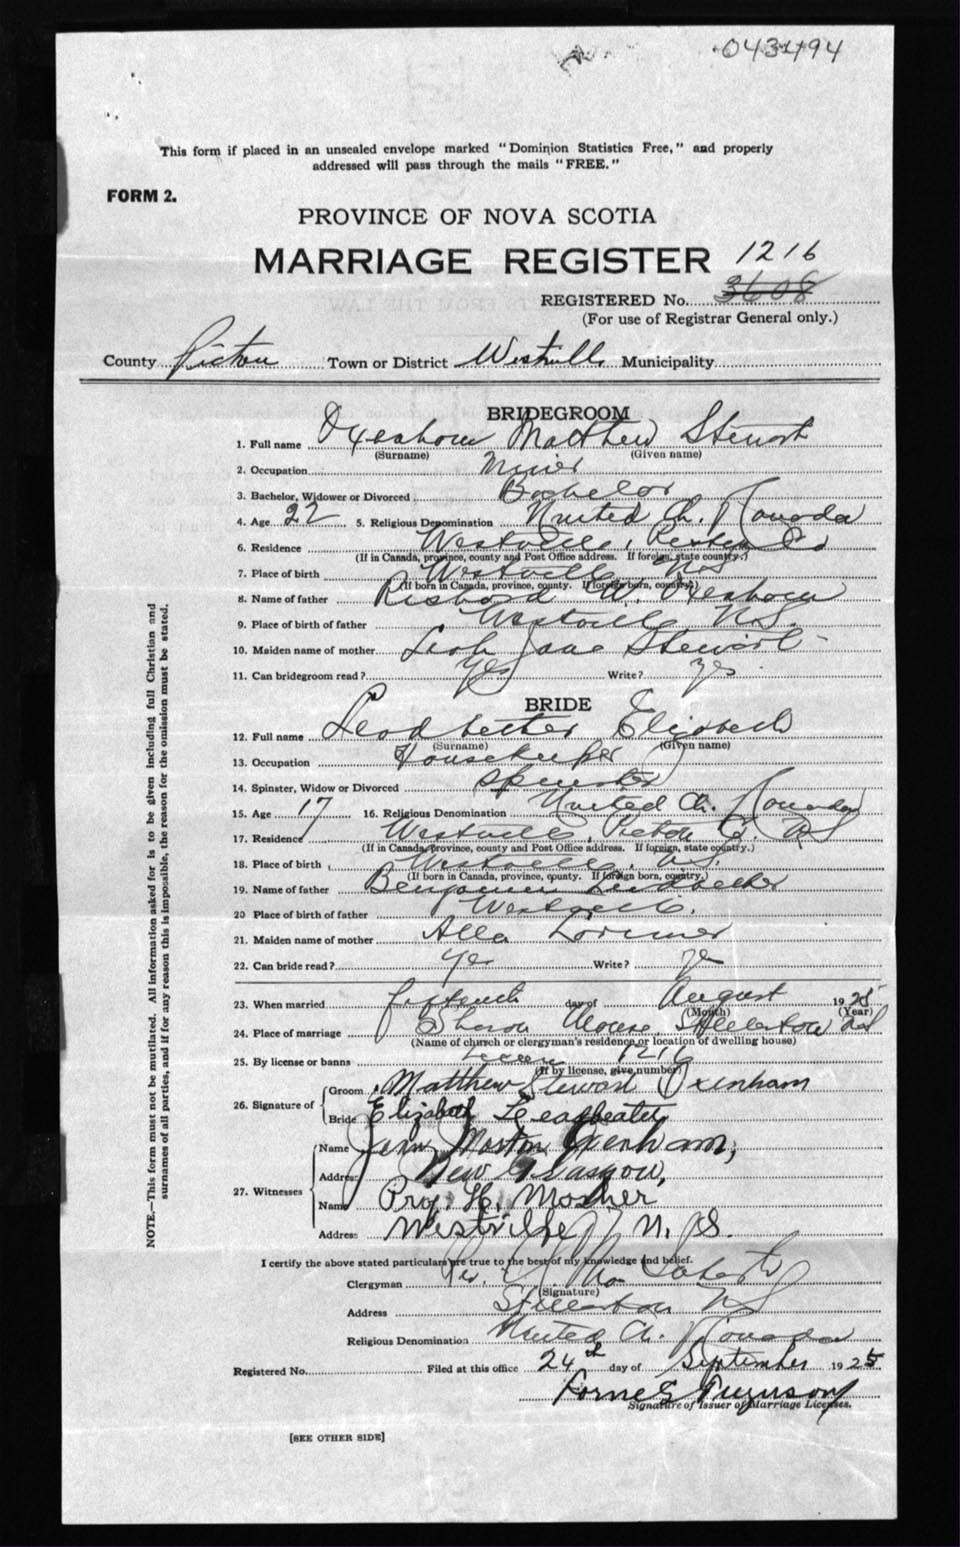 043494
This form if placed in an unsealed envelope marked "Dominion Statistics Free," and properly
addressed will pass through the mails "FREE."
FORM 2.
PROVINCE OF NOVA SCOTIA
MARRIAGE REGISTER 1216
REGISTERED No. 3608
(For use of Registrar General only.)
County Pictou Town or District Westville Municipality
BRIDEGROOM
1. Full name Oxenham Matthew Stewart
(Surname) (Given name)
2. Occupation Miner
3. Bachelor, Widower or Divorced Bachelor
4. Age 22 5. Religious Denomination United Ch. Canada
6. Residence Westville, Pictou Co
(If in Canada, province, county and Post Office address. If foreign, state country.)
7. Place of birth Westville N.S.
(If born in Canada, province, county. If foreign born, country.)
8. Name of father Richard W. Oxenham
9. Place of birth of father Westville N.S.
10. Maiden name of mother Leah Jane Stewart
11. Can bridegroom read? Yes Write? Yes
BRIDE
12. Full name Leadbeeter Elizabeth
(Surname) (Given name)
13. Occupation Housekeeper
14. Spinster, Widow or Divorced Spinster
15. Age 17 16. Religious Denomination United Ch. Canada
17. Residence Westville, Pictou Co. NS
(If in Canada, province, county and Post Office address. If foreign, state country.)
18. Place of birth Westville, N.S.
(If born in Canada, province, county. If foreign born, country.)
19. Name of father Benjamin Leadbeeter
20 Place of birth of father Westville.
21. Maiden name of mother Alla Lorimer
22. Can bride read? Yes Write? Yes
23. When married fifteenth day of August 1925
(Month) (Year)
24. Place of marriage Sharon Manse, Stellarton NS
(Name of church or clergyman's residence or location of dwelling house)
25. By license or banns License 1216
(If by license, give number)
26. Signature of Groom Matthew Stewart Oxenham
Bride Elizabeth Leadbeater
27. Witnesses Name Morton Oxenham,
Address New Glasgow,
Name H. Mosher
Address Westville N. S.
I certify the above stated particulars are true to the best of my knowledge and belief.
Clergyman Rev.
(Signature)
Address Stellarton NS
Religious Denomination United Ch. Canada
Registered No. Filed at this office 24th day of September 1925
Lorne G Ferguson
Signature of Issuer of Marriage Licenses.
[SEE OTHER SIDE]
NOTE.—This form must not be mutilated. All information asked for is to be given including full Christian and
surnames of all parties, and if for any reason this is impossible, the reason for the omission must be stated.